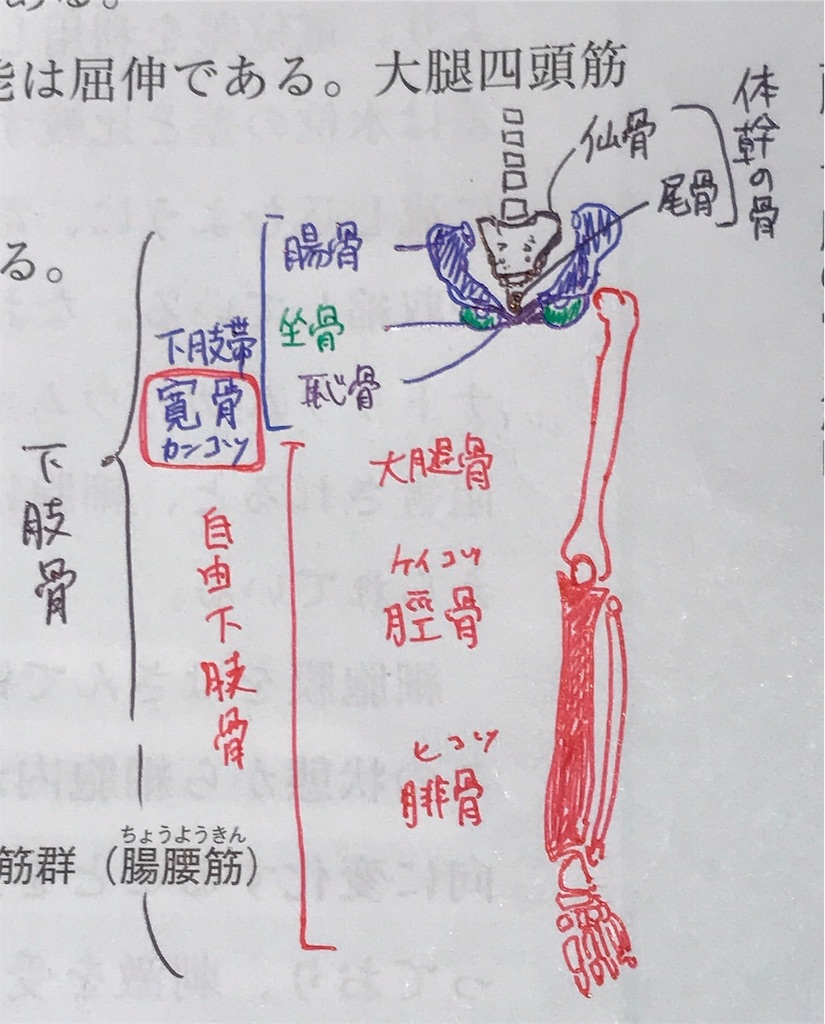 ある。
能は屈伸である。大腿四頭筋
体幹の骨
仙骨
尾骨
る。
腸骨
坐骨
恥骨
下肢帯
寛骨
カンコツ
下肢骨
自由下肢骨
大腿骨
ケイコツ
脛骨
ヒコツ
腓骨
ちょうようきん
筋群（腸腰筋）